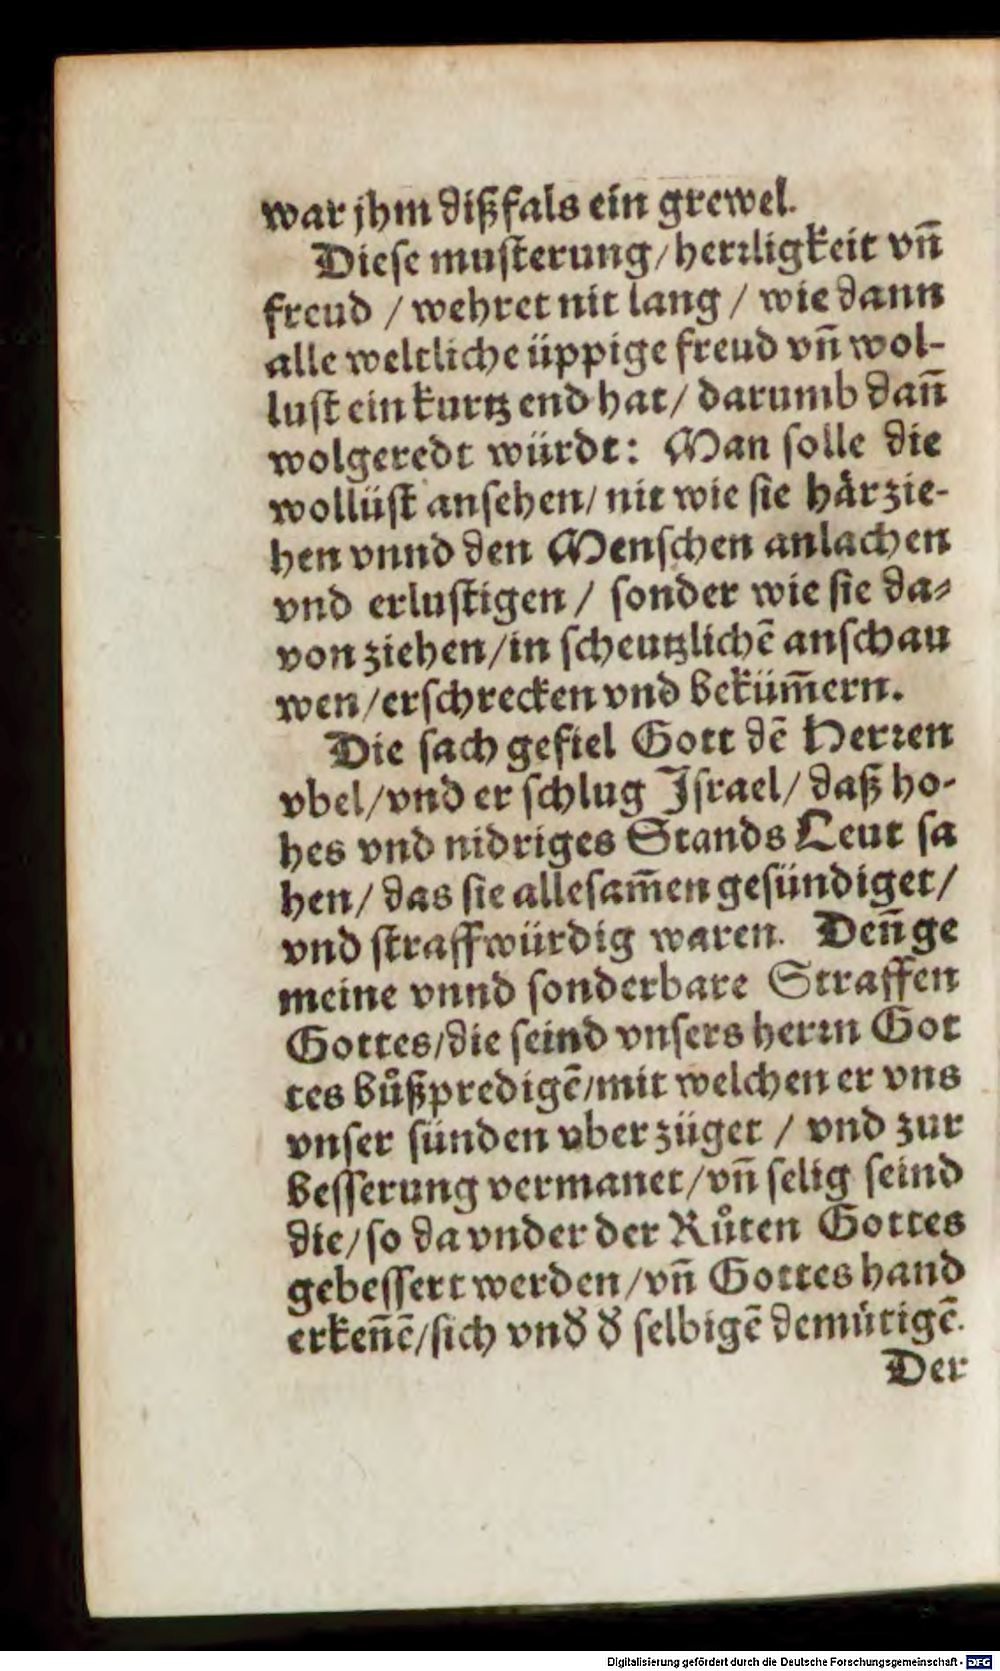 war jhm dißfals ein grewel.
Diese musterung/ herꝛligkeit vn̄
freud / wehret nit lang / wie dann
alle weltliche üppige freud vn̄ wol-
lust ein kurtz end hat/ darumb dan̄
wolgeredt würdt: Man solle die
wollüst ansehen/ nit wie sie härzie-
hen vnnd den Menschen anlachen
vnd erlustigen / sonder wie sie da⸗
von ziehen/in scheutzlichē anschau
wen/erschrecken vnd beküm̄ern.
Die sach gefiel Gott dē Herꝛen
vbel/vnd er schlug Israel/ daß ho-
hes vnd nidriges Stands Leut sa
hen/ das sie allesam̄en gesündiget/
vnd straffwürdig waren. Den̄ ge
meine vnnd sonderbare Straffen
Gottes/die seind vnsers herꝛn Got
tes bůßpredigē/mit welchen er vns
vnser sünden vberzüget / vnd zur
besserung vermanet/vn̄ selig seind
die/so da vnder der Růten Gottes
gebessert werden/vn̄ Gottes hand
erken̄ē/sich vnd̕ d̕ selbigē demütigē.
Der
Digitalisierung gefördert durch die Deutsche Forschungsgemeinschaft - DFG